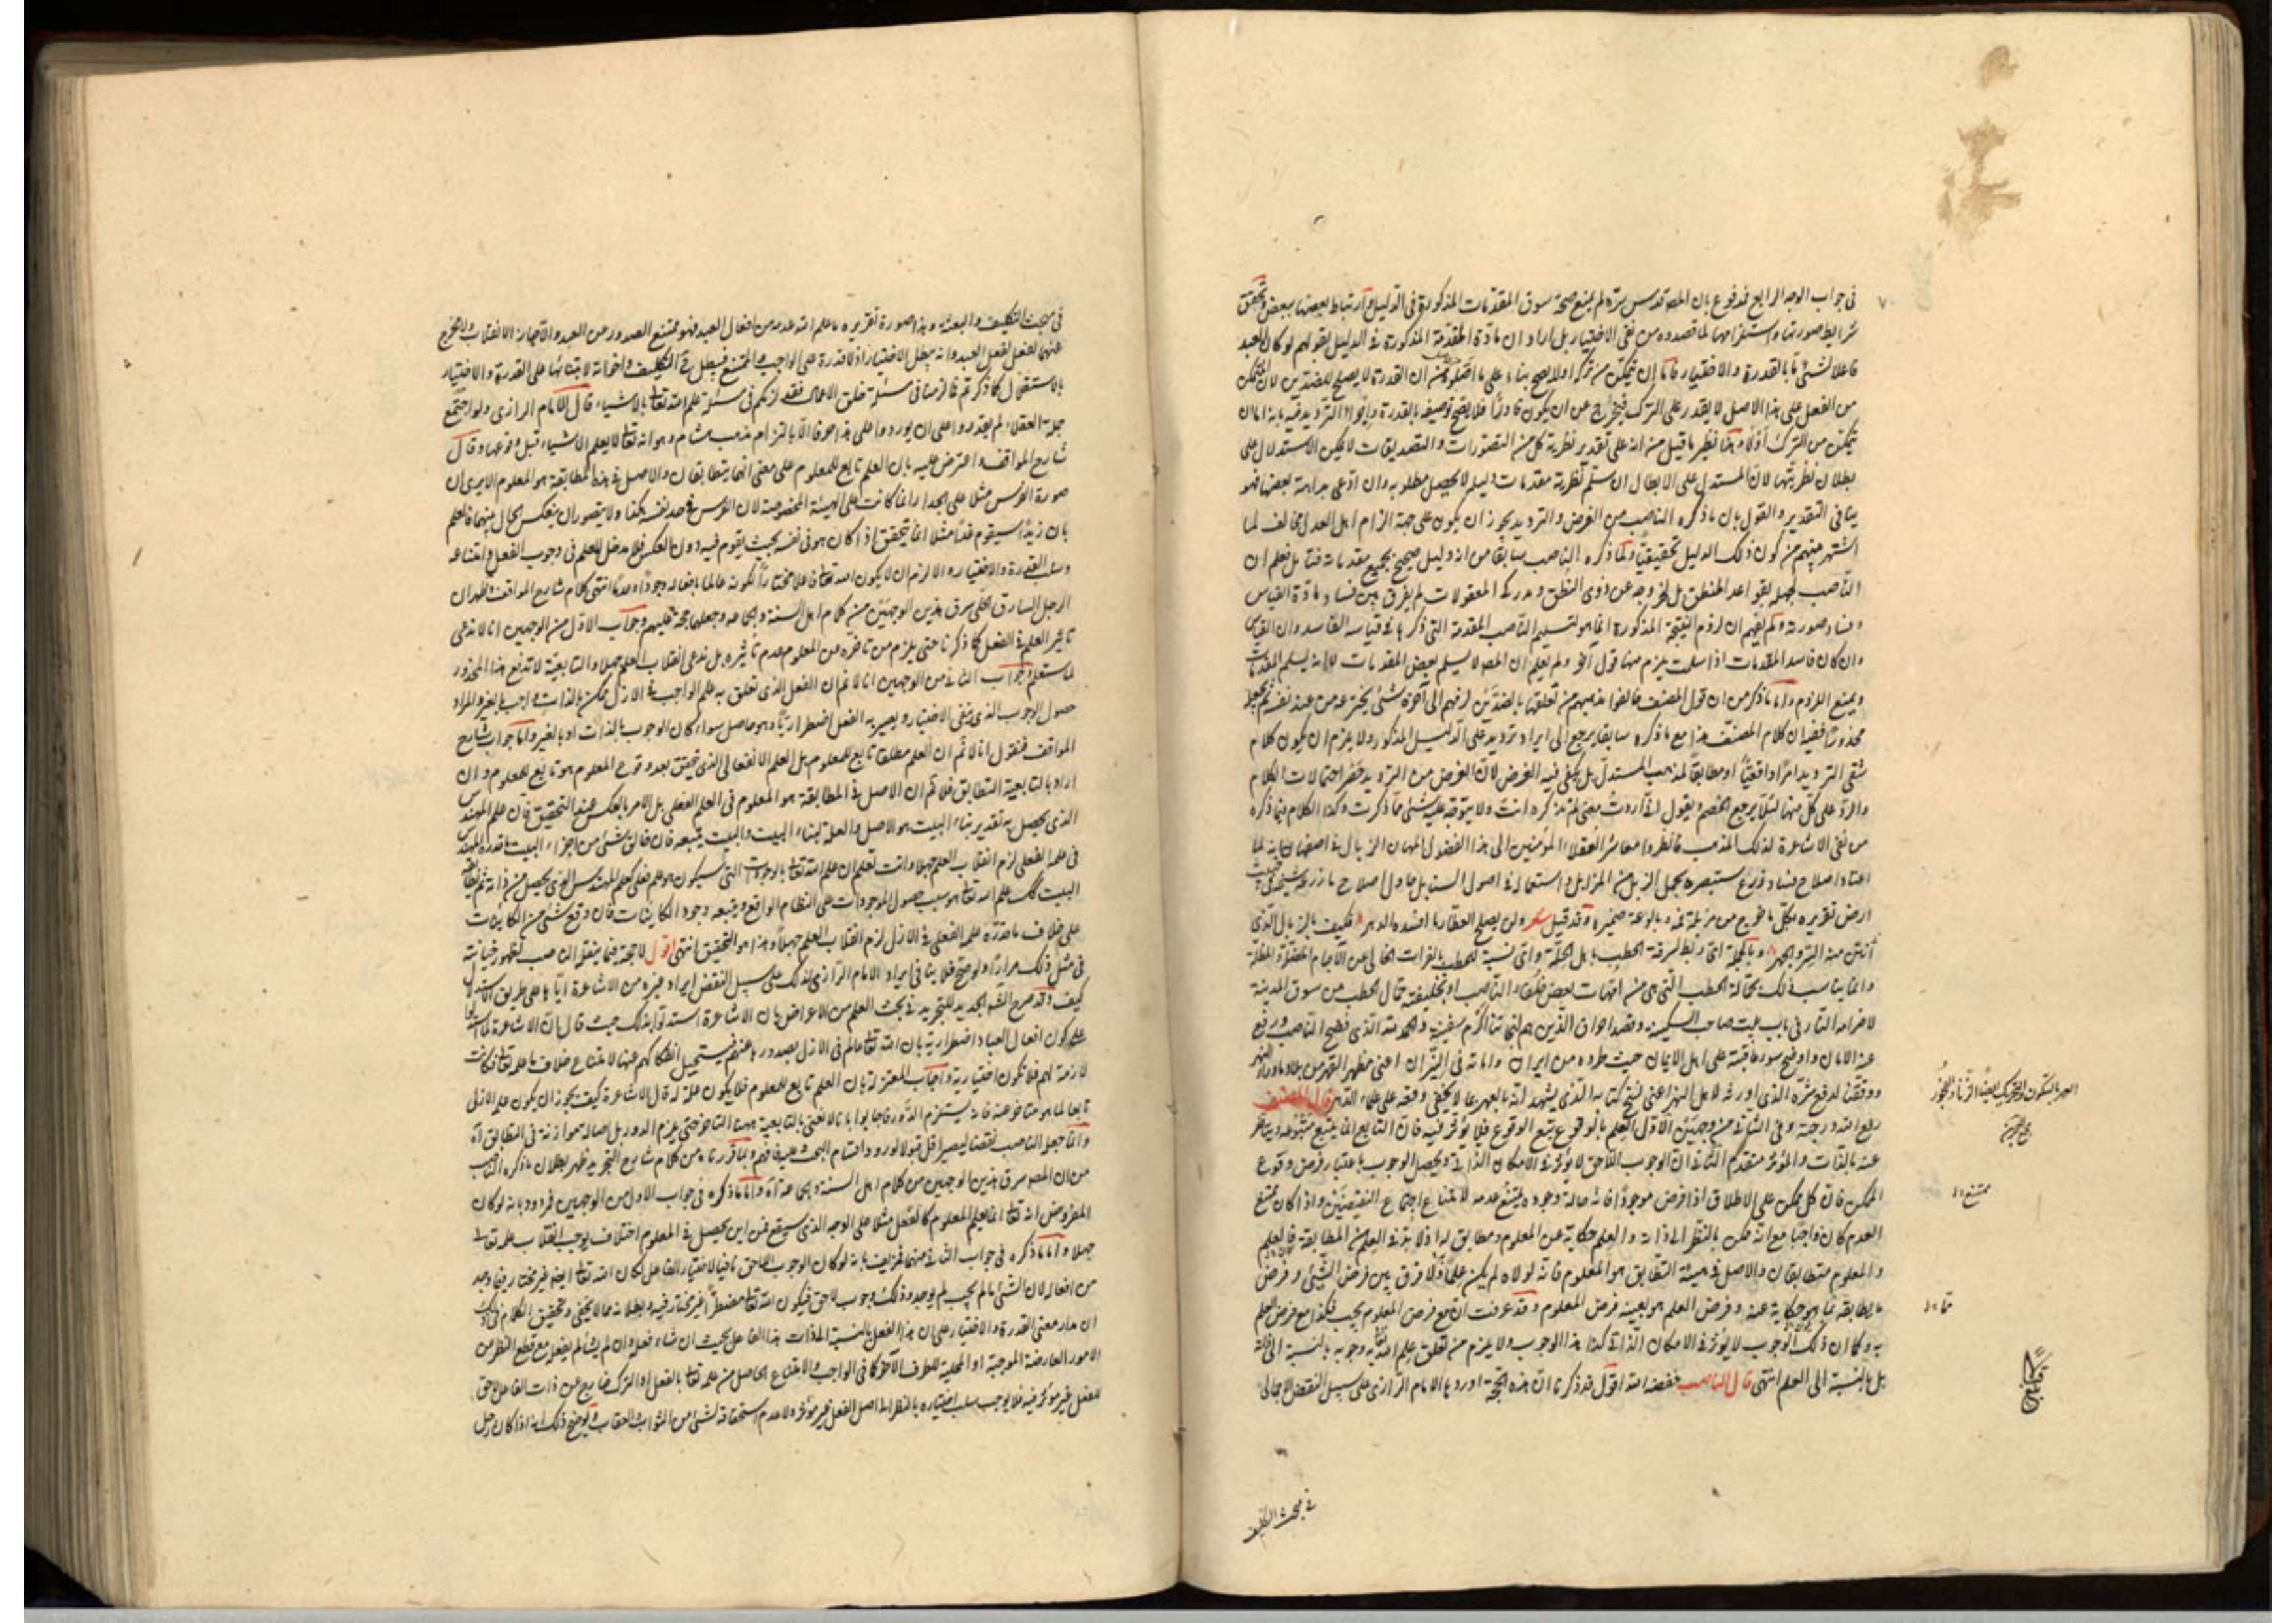 في جواب الوجه الرابع فمدفوع بان المص قدس سره لم يمنع صحة سوق المقدمات المذكورة في الدليل وارتباط بعضها ببعض وتحقق
شرايط صورتها واستلزامها لما قصدوه من نفي الاختيار بل اراد ان مادة المقدمة المذكورة في الدليل بقولهم لو كان العبد
فاعلا لشئ ما بالقدرة والاختيار فاما ان يتمكن من تركه اولا لا يصح بناء على ما اصلوه من ان القدرة لا يصلح للضدين لان المتمكن
من الفعل على هذا الاصل لا يقدر على الترك فيخرج عن ان يكون قادرا فلا يصح توصيفه بالقدرة وايراد الترديد فيه بانه اما ان
يتمكن من الترك او لا وهذا نظير ما قيل من انه على تقدير نظرية كل من التصورات والتصديقات لا يمكن الاستدلال على
بطلان نظريتها لان المستدل على الابطال ان سلم نظرية مقدمات دليله لا يحصل مطلوبه وان ادعى بداهة بعضها فهو
ينافي التقدير والقول بان ما ذكره الناصب من الفرض والترديد يجوز ان يكون على جهة الزام اهل العدل مخالف لما
اشتهر منهم من كون ذلك الدليل تحقيقيا ولما ذكره الناصب سابقا من انه دليل صحيح بجميع مقدماته فتأمل فعلم ان
الناصب لجهله بقواعد المنطق بل لخروجه عن ذوى النطق ومدركه المعقولات لم يفرق بين فساد مادة القياس
وفساد صورته ولم يفهم ان لزوم النتيجة المذكورة انما هو لتسليم الناصب المقدمة التي ذكرها في قياسه الفاسد وان القياس
وان كان فاسد المقدمات اذا سلمت يلزم منها قول آخر ولم يعلم ان المص لا يسلم بعض المقدمات
ويمنع اللزوم واما ما ذكر من ان قول المصنف خالفوا مذهبهم من تعلقها بالضدين لزمهم الى آخره شئ يخترعه من عند نفسه ثم يجعله
محذورا ففيه ان كلام المصنف هذا مع ما ذكره سابقا يرجع الى ايراد ترديد على الدليل المذكور ولا يلزم ان يكون كلام
شقى الترديد امرا واقعيا او مطابقا لمذهب المستدل بل يكفى فيه الفرض لان الغرض من الترديد حصر احتمالات الكلام
والرد على كل منها لئلا يرجع الخصم ويقول انى اردت معنى لم تذكره انت ولا يتوجه عليه شئ مما ذكرت وكذا الكلام فيما ذكره
من نفى الاشاعرة لذلك المذهب فانظروا معاشر العقلاء المؤمنين الى هذا الفضول المهان الزبال
اعتاد اصلاح فساد وزرع بستبصره بحمل الزبل من المزابل واستعماله في اصول السنابل حاول اصلاح ما زرعه شيخه
ارض تقريره بكل ما خرج من مزبلة فمه وبالوعة ضميره وقد قيل شعر ولن يصلح العطار ما افسده الدهر فكيف بالزبال الذي
انتن منه البر والبحر وبالجملة اى ربط لسرقة الحطب بأهل الحلة واى نسبة للحطب بالفرات الخالى عن الآجام
وانما يناسب ذلك بحمالة الحطب التي هي من امهات بعض خلفاء الناصب او بخليفته حمال الحطب من سوق المدينة
لاضرام النار في باب بيت صاحب السكينة وقصد احراق الذين هم لنجاتنا اكرم سفينة والحمد لله الذي فضح الناصب ورفع
عنه الامان واوضح سوء عاقبته على اهل الايمان حيث طرده من ايران واماته في النيران اعنى مظهر القهر من بلاد ماوراء النهر
ووفقنا لدفع شره الذي اورثه لاهل النهر اعنى نسخ كتابه الذي يشهد انه بالعهر بما لا يخفى وقعه على علماء الدهر قال المصنف
رفع الله درجته وفى الثانى من وجهين الاول العلم بالوقوع يتبع الوقوع فلا يؤثر فيه فان التابع انما يتبع متبوعه ويتأخر
عنه بالذات والمؤثر متقدم الثانى ان الوجوب اللاحق لا يؤثر في الامكان الذاتى ويحصل الوجوب باعتبار فرض وقوع
الممكن فان كل ممكن على الاطلاق اذا فرض موجودا فانه حالة وجوده يمتنع عدمه لامتناع اجتماع النقيضين واذا كان ممتنع
العدم كان واجبا مع انه ممكن بالنظر الى ذاته والعلم حكاية عن المعلوم ومطابق له اذ لا بد في العلم من المطابقة فالعلم
والمعلوم متطابقان والاصل في هيئة التطابق هو المعلوم فانه لولاه لم يكن علما ولا فرق بين فرض الشئ وفرض
ما يطابقه بما هو حكاية عنه وفرض العلم هو بعينه فرض المعلوم وقد عرفت ان مع فرض المعلوم يجب فكذا مع فرض العلم
به وكما ان ذلك الوجوب لا يؤثر في الامكان الذاتى كذا هذا الوجوب ولا يلزم من تعلق علم الله به وجوبه بالنسبة الى ذاته
بل بالنسبة الى العلم انتهى قال الناصب خفضه الله اقول قد ذكرنا ان هذه الحجة اوردها الامام الرازى على سبيل النقض الاجمالى
في مبحث التكليف
ممتنع
في مبحث التكليف والبعثة وهذا صورة تقريره ما علم الله عدمه من افعال العبد فهو ممتنع الصدور عن العبد والا جاز الانقلاب ولا مخرج
عنهما لفعل العبد وانه يبطل الاختيار اذ لا قدرة على الواجب والممتنع فيبطل ح التكليف واخواته لابتنائها على القدرة والاختيار
بالاستقلال كما ذكرتم فما لزمنا في مسئلة خلق الاعمال فقد لزمكم في مسئلة علم الله تعالى بالاشياء قال الامام الرازى ولو اجتمع
جملة العقلاء لم يقدروا على ان يوردوا على هذا حرفا الا بالتزام مذهب هشام وهو انه تعالى لا يعلم الاشياء قبل وقوعها وقال
شارح المواقف واعترض عليه بان العلم تابع للمعلوم على معنى انهما يتطابقان والاصل في هذه المطابقة هو المعلوم الا يرى ان
صورة الفرس مثلا على الجدار انما كانت على الهيئة المخصوصة لان الفرس في حد نفسه هكذا ولا يتصور ان ينعكس الحال بينهما فالعلم
بان زيدا سيقوم غدا مثلا انما يتحقق اذا كان هو في نفسه بحيث يقوم فيه دون العكس فلا مدخل للعلم في وجوب الفعل وامتناعه
وسلب القدرة والاختيار والا لزم ان لا يكون الله تعالى فاعلا مختارا لكونه عالما بافعاله وجودا وعدما انتهى كلام شارح المواقف وظهر ان
الرجل السارق الحلى سرق هذين الوجهين من كلام اهل السنة والجماعة وجعلهما حجة عليهم وجواب الاول من الوجهين انا لا ندعى
تاثير العلم في الفعل كما ذكرنا حتى يلزم من تاخره عن المعلوم عدم تأثيره بل ندعى انقلاب العلم جهلا والتابعية لا تدفع هذا المحذور
لما ستعلم وجواب الثاني من الوجهين انا لا نم ان الفعل الذي تعلق به علم الواجب في الازل ممكن بالذات واجب بالغير والمراد
حصول الوجوب الذي ينفى الاختيار ويصير به الفعل اضطراريا وهو حاصل سواء كان الوجوب بالذات او بالغير واما جواب شارح
المواقف فنقول انا لا نم ان العلم مطلقا تابع للمعلوم بل العلم الانفعالى الذي تحقق بعد وقوع المعلوم هو تابع للمعلوم وان
اراد بالتابعية التطابق فلا نم ان الاصل في المطابقة هو المعلوم في العلم الفعلى بل الامر بالعكس عند التحقيق فان علم المهندس
الذي يحصل به تقدير بناء البيت هو الاصل والعلة لبناء البيت والبيت يتبعه فان خالف شئ من اجزاء البيت ما قدره المهندس
في علمه الفعلى لزم انقلاب العلم جهلا وانت تعلم ان علم الله تعالى بالموجودات التي سيكون هو علم فعلى كعلم المهندس الذي يحصل من ذاته ثم يطابقه
البيت كذلك علم الله تعالى هو سبب حصول الموجودات على النظام الواقع ويتبعه وجود الكاينات فان وقع شئ من الكاينات
على خلاف ما قدره علمه الفعلى في الازل لزم انقلاب العلم جهلا وهذا هو التحقيق انتهى اقول لا حجة فيما ينقله الناصب لظهور خيانته
في مثل ذلك مرارا ولو صح فلا ينافى ايراد الامام الرازى لذلك على سبيل النقض ايراد غيره من الاشاعرة اياها على طريق الاستدلال
كيف وقد صرح الشارح الجديد للتجريد في بحث العلم من الاعراض بان الاشاعرة استدلوا بذلك حيث قال ان الاشاعرة لما استدلوا
على كون افعال العباد اضطرارية بان الله تعالى عالم في الازل بصدورها عنهم فيستحيل انفكاكهم عنها لامتناع خلاف ما علمه تعالى فكانت
لازمة لهم فلا تكون اختيارية واجاب المعتزلة بان العلم تابع للمعلوم فلا يكون علة له قال الاشاعرة كيف يجوز ان يكون علمه الازلى
تابعا لما هو متاخر عنه فانه يستلزم الدور فاجابوا بانا لا نعنى بالتابعية ههنا التاخر حتى يلزم الدور بل اصالة موازنة في التطابق اه
وانما جعل الناصب نقضا ليصير اقل قبولا لورود اقسام البحث عليه فافهم وبما قررناه من كلام شارح التجريد ظهر بطلان ما ذكره الناصب
من ان المص سرق هذين الوجهين من كلام اهل السنة والجماعة اه واما ما ذكره في جواب الاول من الوجهين فمردود بانه لو كان
المفروض انه تعالى انما يعلم المعلوم كالفعل مثلا على الوجه الذي سيقع فمن اين يحصل في المعلوم اختلاف يوجب انقلاب علمه تعالى
جهلا واما ما ذكره في جواب الثاني منهما فمزيف بانه لو كان الوجوب اللاحق نافيا لاختيار الفاعل لكان الله تعالى ايضا غير مختار فيما وجد
من افعاله لان الشئ ما لم يجب لم يوجد وذلك وجوب لاحق فيكون الله تعالى مضطرا غير مختار فيه وبطلانه مما لا يخفى وتحقيق الكلام في ذلك
ان مدار معنى القدرة والاختيار على ان هذا الفعل بالنسبة الى ذات هذا الفاعل بحيث ان شاء فعله وان لم يشأ لم يفعله مع قطع النظر من
الامور العارضة الموجبة او المحلية للطرف الآخر كما في الواجب والامتناع الحاصل من علمه تعالى بالفعل او الترك خارج عن ذات الفاعل لاحق
للفعل غير مؤثر فيه فلا يوجب سلب اختياره بالنظر الى اصل الفعل غير مؤثر ولا عدم استحقاقه لشئ من الثواب والعقاب وتوضيح ذلك انه اذا كان رجل